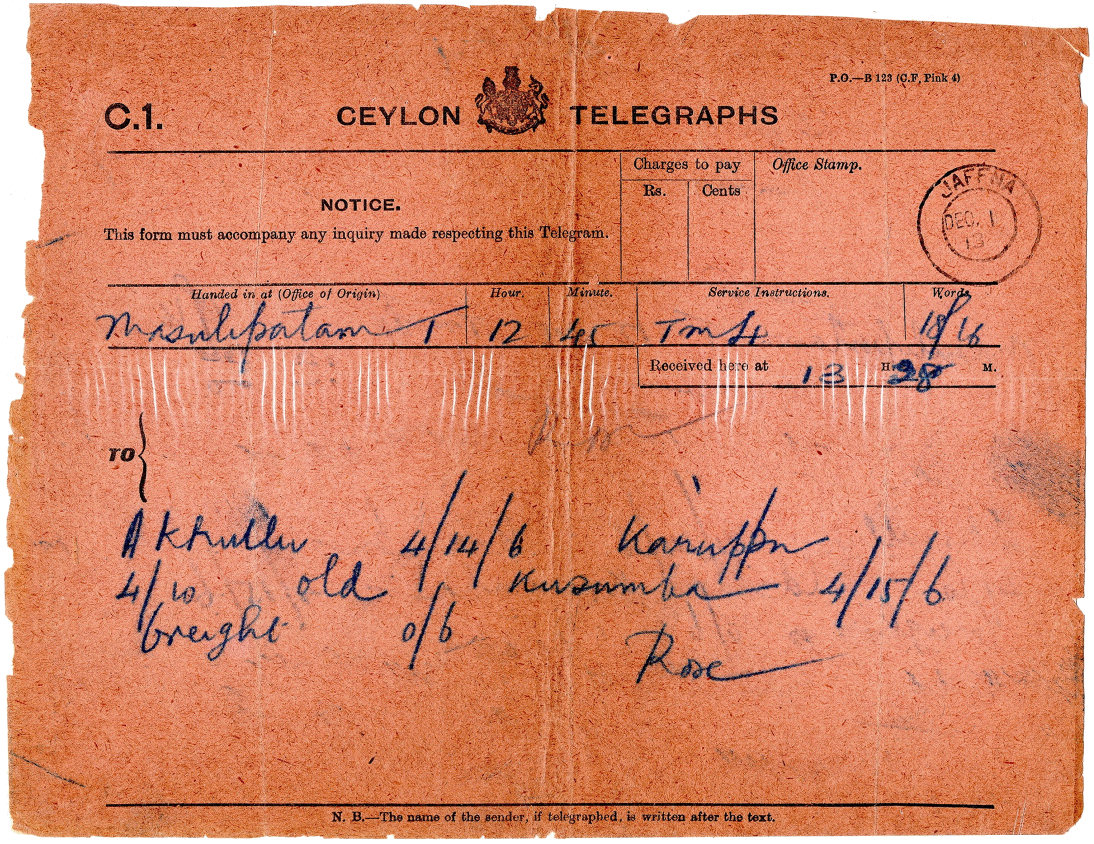 P.O.—B 123 (C.F, Pink 4)
C.1. CEYLON TELEGRAPHS
Charges to pay
Office Stamp.
Rs. Cents
JAFFNA
DEC. 1
13
NOTICE.
This form must accompany any inquiry made respecting this Telegram.
Handed in at (Office of Origin) Hour. Minute. Service Instructions. Words.
Masulipatam T 12 45 18/16
Received here at 13 H. 28 M.
TO
4/14/6 Karuppu
4/10 old Kusumba 4/15/6
freight 0/6
Rose
N. B.—The name of the sender, if telegraphed, is written after the text.